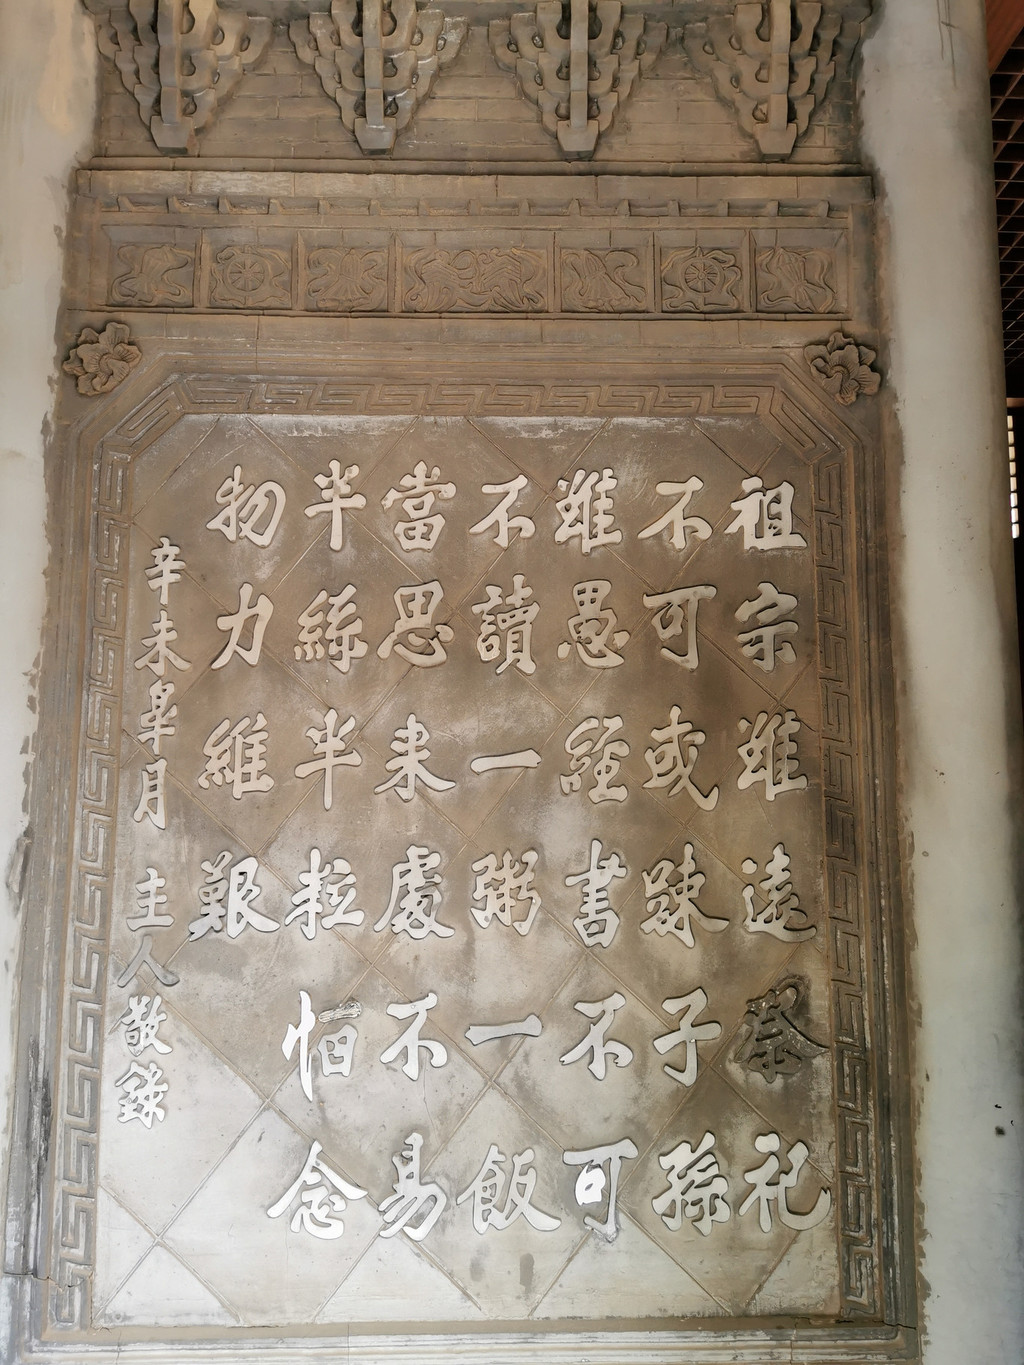 祖宗雖遠祭祀
不可或踈子孫
雖愚經書不可
不讀一粥一飯
當思来處不易
半絲半粒恒念
物力維艱
辛未皐月 主人敬錄